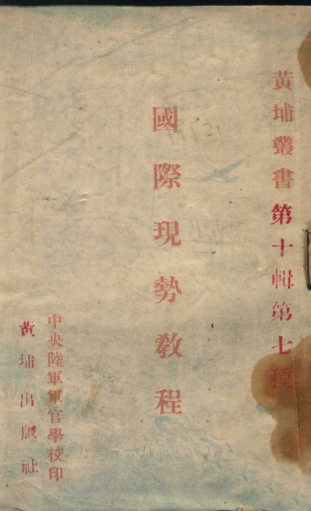 黃埔叢書第十輯第七種
國際現勢教程
中央陸軍軍官學校印
黃埔出版社